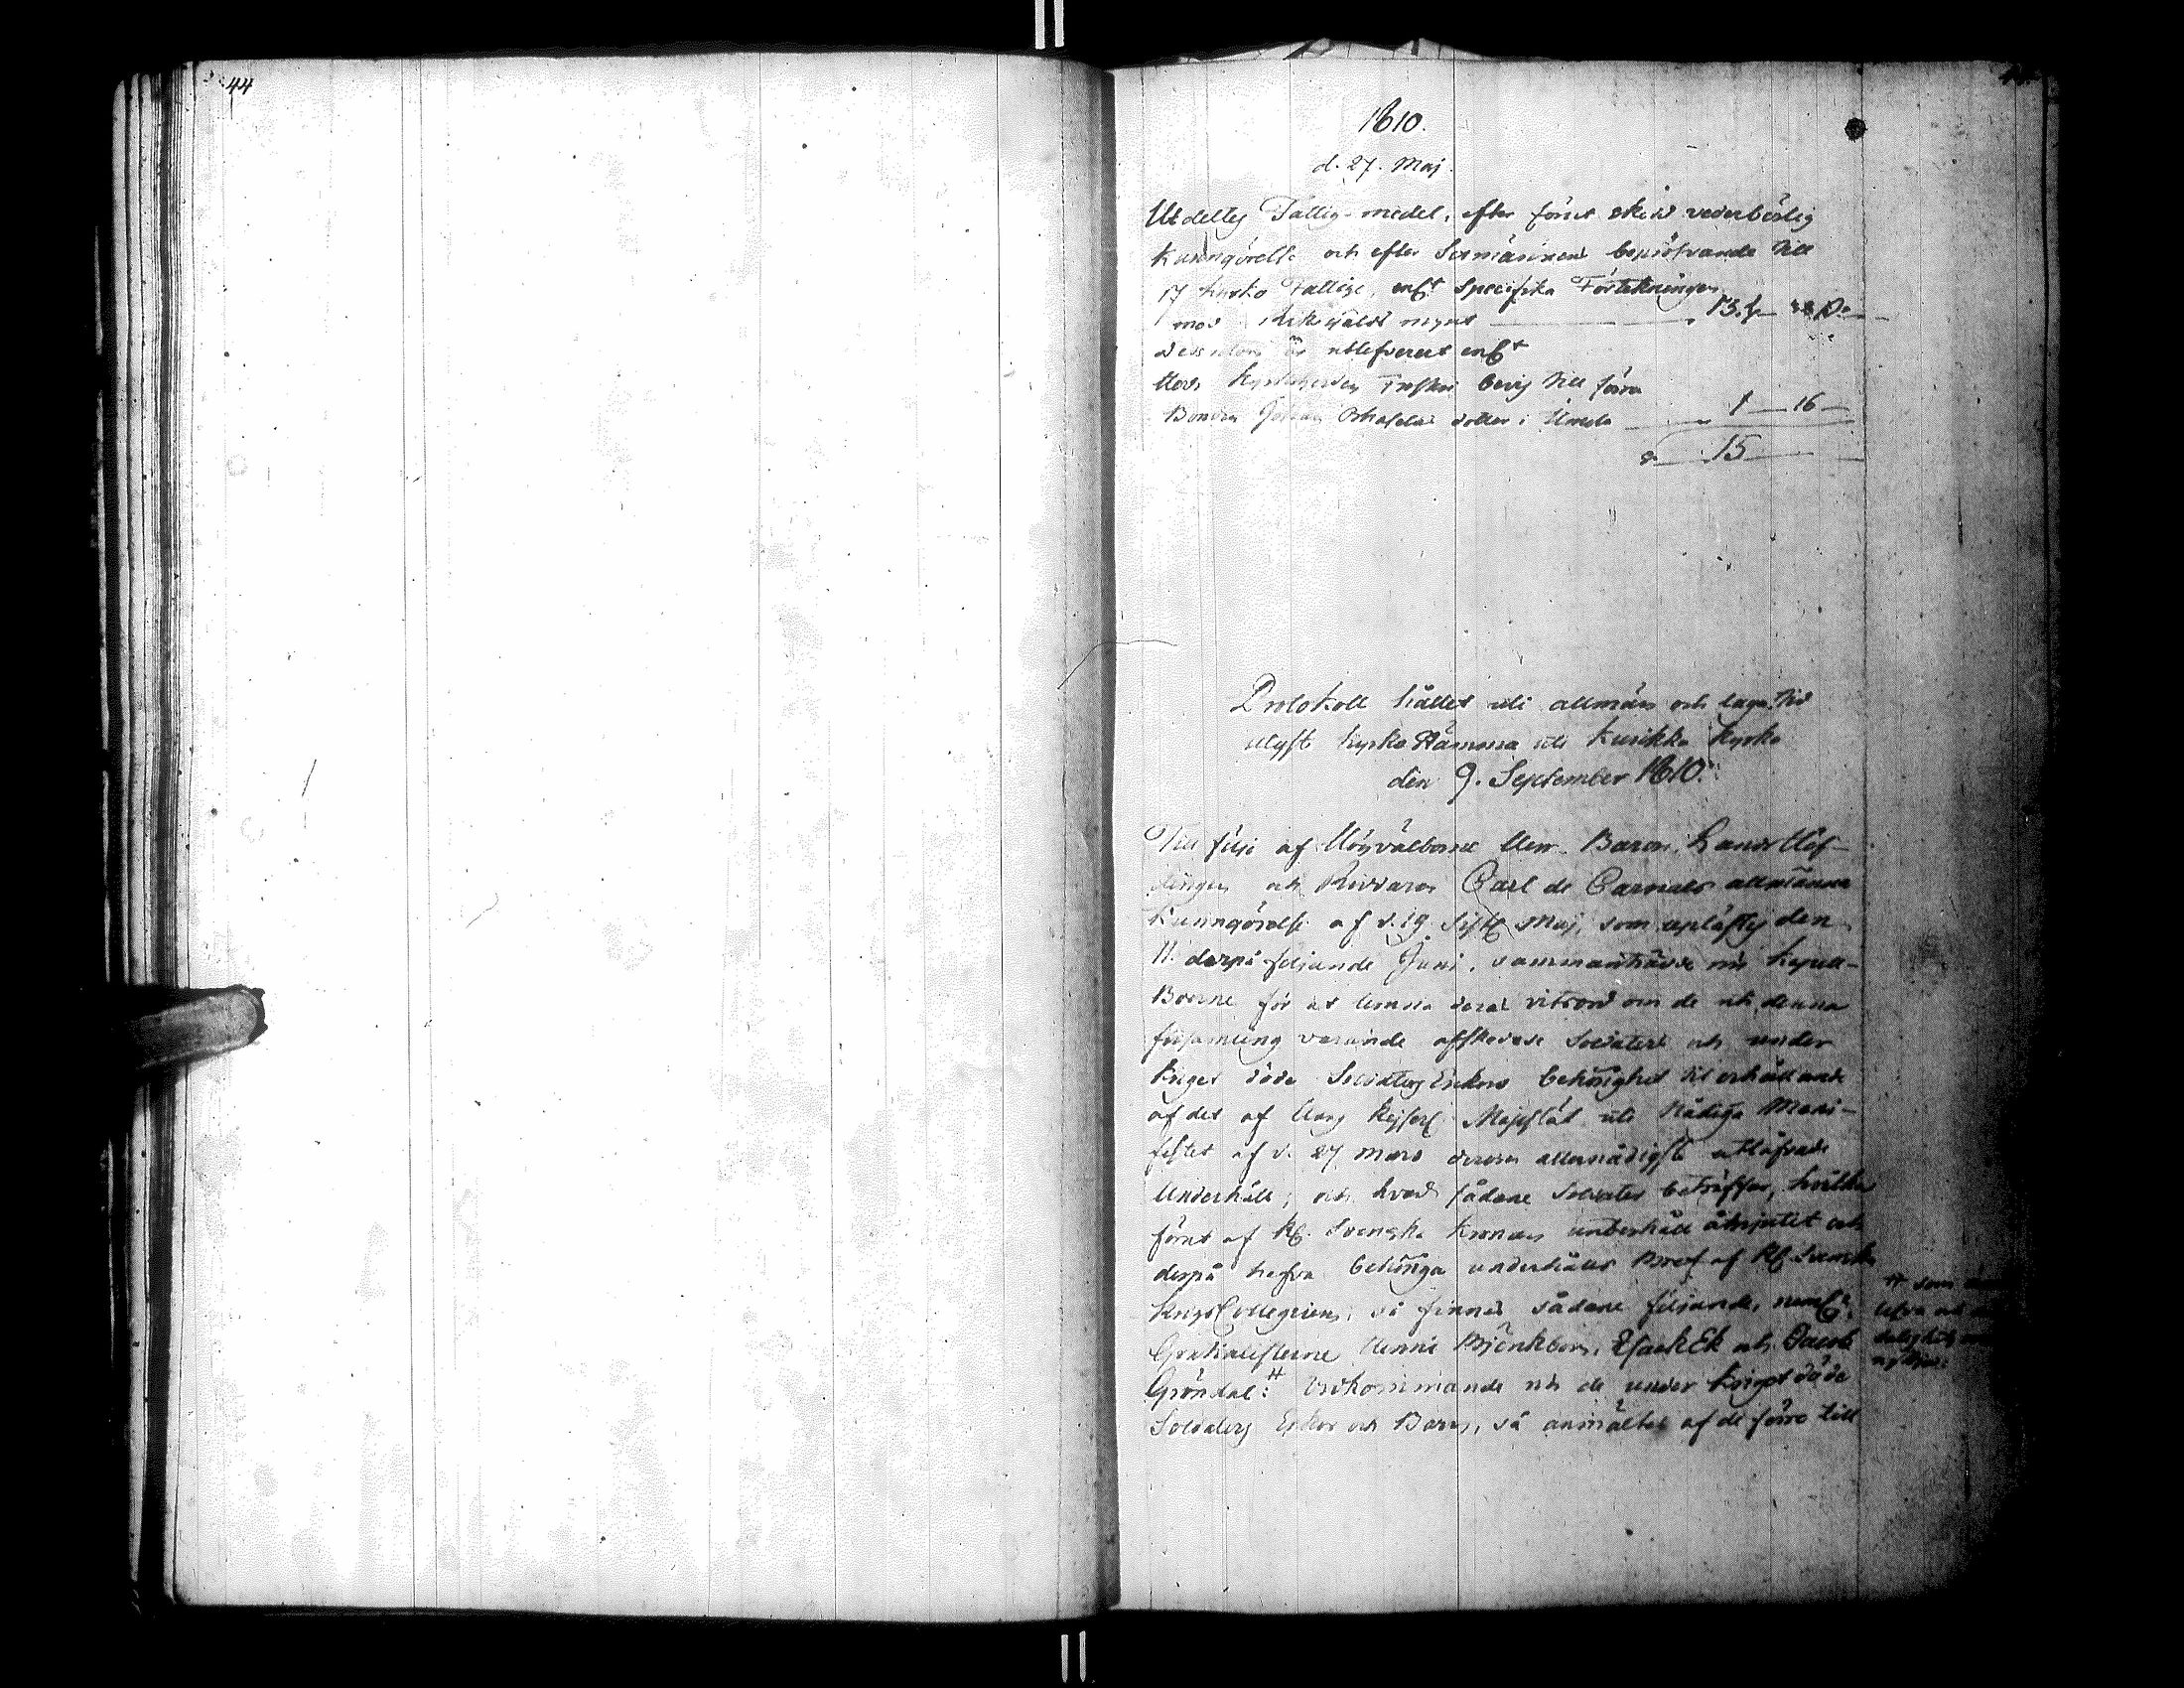 44
1810.
d. 27. Maj.
Utdeltes Fattig-medel, efter förut skedd vederbörlig
kunngörelse och efter Sexmännens bepröfvande till
17 kyrko Fattige, enl:t specifika Förtekningen
med Riksgälds mynt 13.
dessutom är utlefverert enl:t
Herr Kyrkoherden bevis till förra
Bonden dotter i 1 — 16 —
15
Protokoll hållet uti allmän och laga tid
utlyst kyrko Stämma uti Kurikka kyrka
den 9. September 1810.
Till följe af Högvälborne Herr Baron, Landshöf-
dingen och Riddaren Carl de Carnalls allmänna
Kunngörelse af d. 19 sistl. Maj, som uplästes den
11. derpå följande Juni, sammanträdde nu Kapell-
Boerne för at lemna deras vitsord om de uti denna
församling varande afskedade Soldaters och under
kriget döde Soldaters Enkors behörighet til erhållande
af det af Hans Kejserl. Majestät uti Nådiga Mani-
festet af d. 27 Mars allernådigst utlåfvade
Underhåll; och hvad sådane Soldater beträffar, hvilka
förut af Kgl. Svenska Kronan underhåll åtnjutit och
derpå hafva behöriga underhålls Bref af Kgl. Svenska
Krigs Collegium, så finnas sådane följande, neml:n
Gratialisterne Henric Björkbom, Isack Ek och Jacob
Gröndal: # vidkommande och de under kriget döde
Soldaters Enkor och Barn, så anmältes af de förre till
# som
lefva